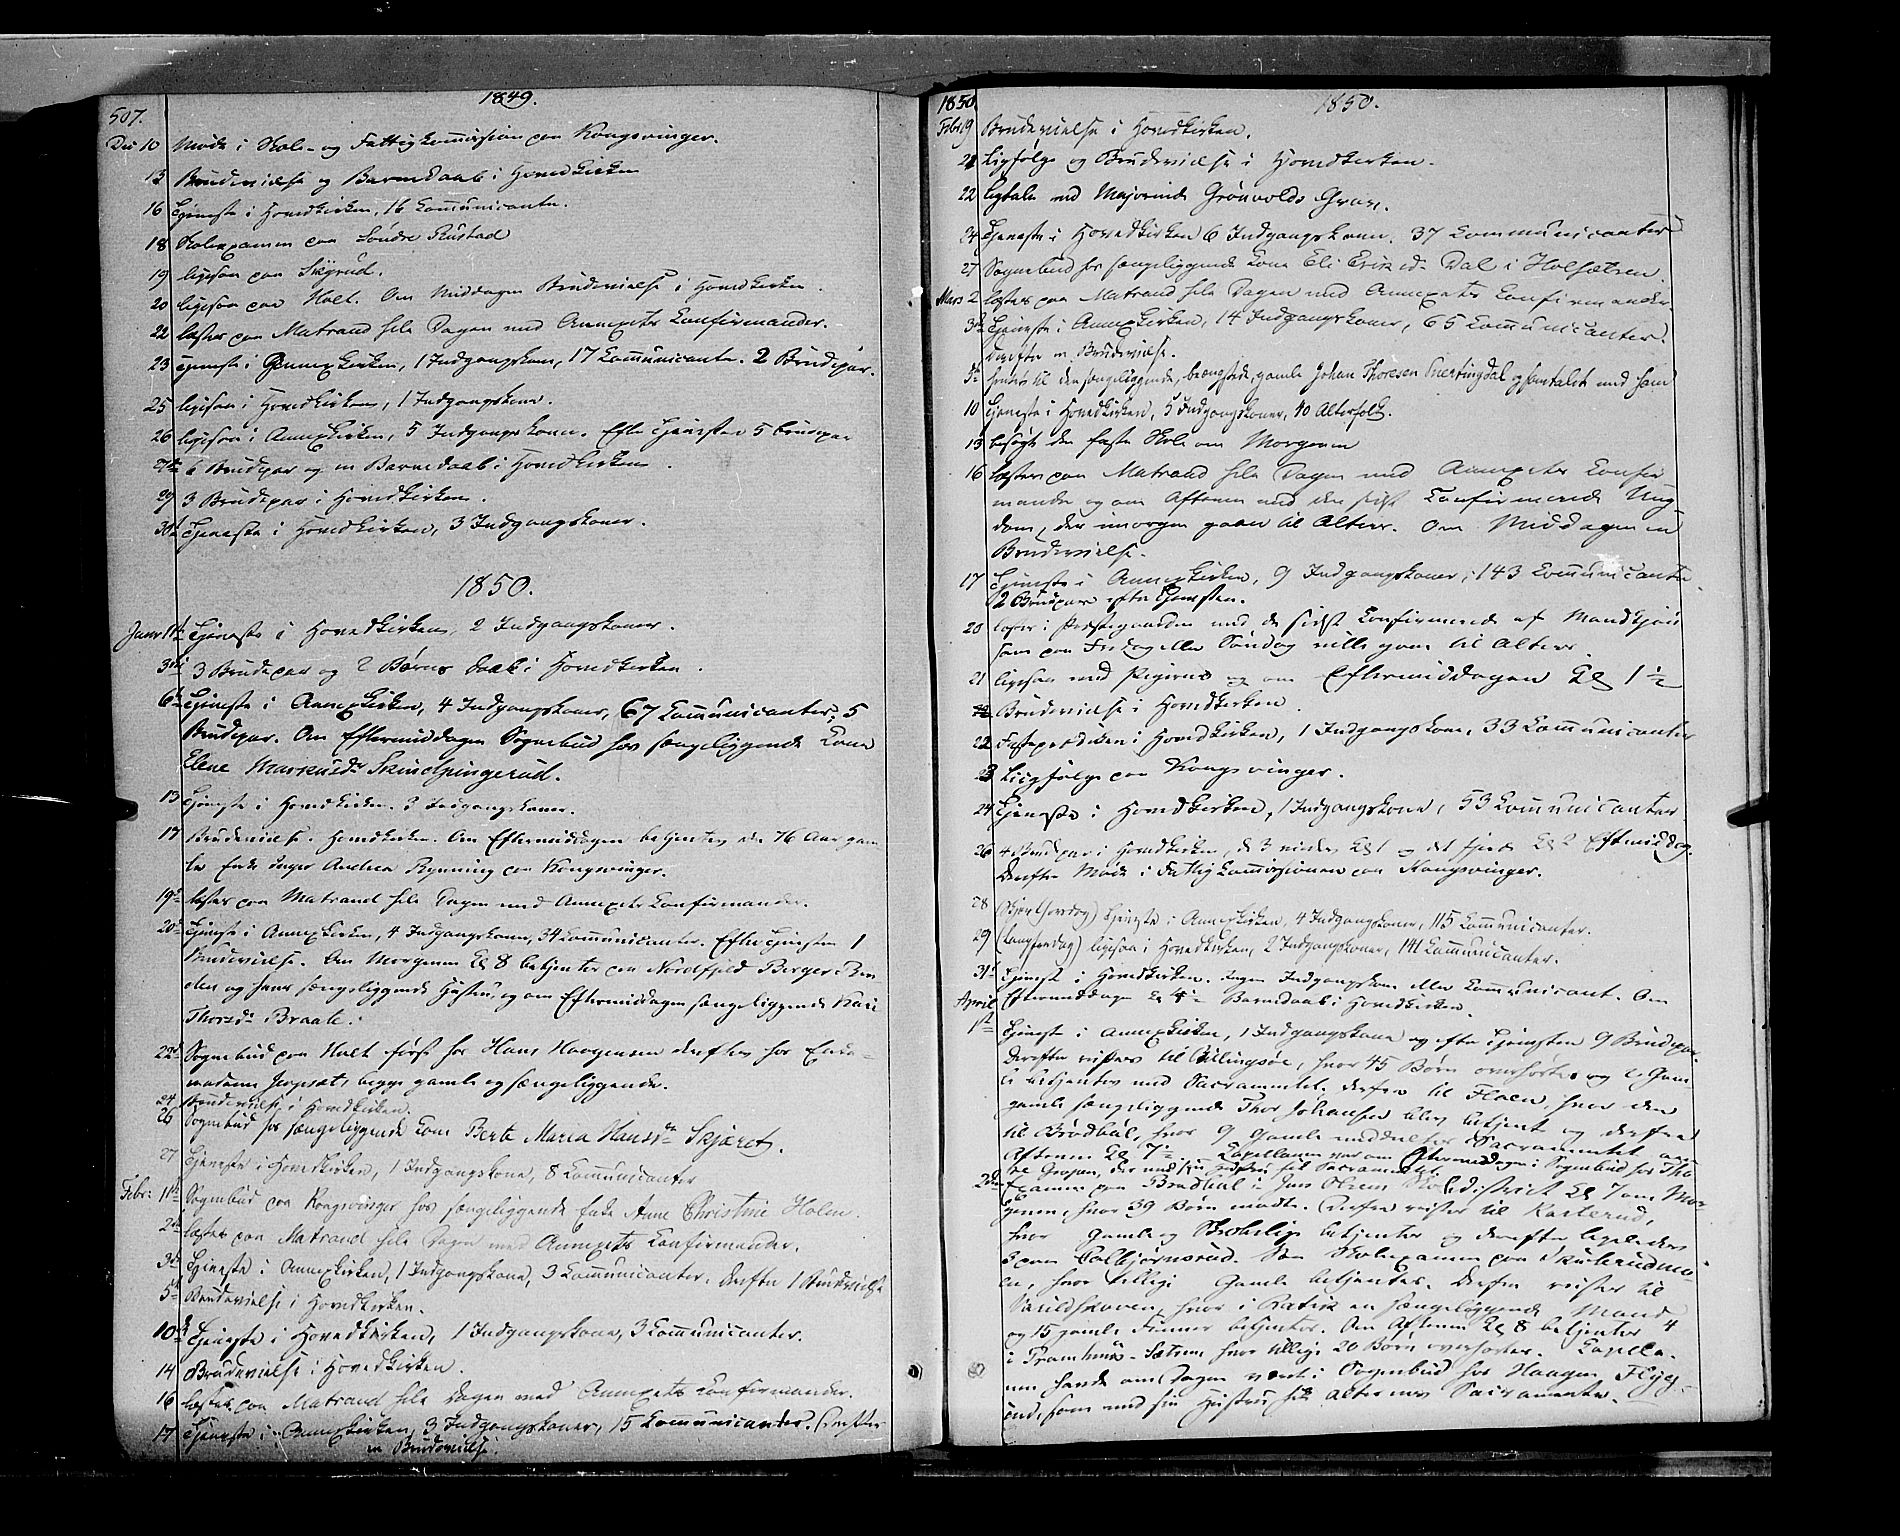 507.
1849.
Dec 10 Møde i Skole- og Fattigkommission paa Kongsvinger.
13 Brudevielse og Barnedaab i Hovedkirken
16 Tjeneste i Hovedkirken, 16 Communicanter.
18 Skolexamen paa Søndre Rustad
19 ligesaa paa Sigrud.
20 ligesaa paa Holt. Om Middagen Brudevielse i Hovedkirken.
22 læstes paa Matrand hele Dagen med Annexets Confirmander.
23 Tjeneste i Annexkirken, 1 Indgangskone, 17 Communicanter. 2 Brudepar.
25 ligesaa i Hovedkirken, 1 Indgangskone.
26 ligesaa i Annexkirken, 5 Indgangskoner. Efter Tjenesten 5 Brudepar
27de 6 Brudepar og en Barnedaab i Hovedkirken.
29 3 Brudepar i Hovedkirken.
30te Tjeneste i Hovedkirken, 3 Indgangskoner.
1850.
Janr 1ste Tjeneste i Hovedkirken, 2 Indgangskoner.
3die 3 Brudepar og 2 Børns Daab i Hovedkirken.
6te Tjeneste i Annexkirken, 4 Indgangskoner, 67 Communicanter, 5
Brudepar. Om Eftermiddagen Sognebud hos sengeliggende Kone
Elene Markusdr Skindpungerud.
13 Tjeneste i Hovedkirken. 3 Indgangskoner.
17 Brudevielse i Hovedkirken. Om Eftermiddagen betjentes den 76 Aar gam
le Enke Inger Andrea Rynning paa Kongsvinger.
19de læstes paa Matrand hele Dagen med Annexets Confirmander.
20de Tjeneste i Annexkirken, 4 Indgangskoner, 34 Communicanter. Efter Tjenesten 1
Brudevielse. Om Morgenen Kl 8 betjentes paa Nordfjeld Berger Ben
den og hans sengeliggende Hustru, og om Eftermiddagen sengeliggende Kari
Thorsdr Braate.
22de Sognebud paa Holt først hos Hans Haagensen derefter hos Enke-
madame begge gamle og sengeliggende.
24 Brudevielse i Hovedkirken.
26 Sognebud hos sengeliggende Kone Berte Maria Hansdr Skjæret.
27 Tjeneste i Hovedkirken, 1 Indgangskone, 8 Communicanter
Febr: 1ste Sognebud paa Kongsvinger hos sengeliggende Enke Anne Christine Holm.
2den læstes paa Matrand hele Dagen med Annexets Confirmander.
3die Tjeneste i Annexkirken, 1 Indgangskone, 3 Communicanter. derefter 1 Brudevielse
5te Brudevielse i Hovedkirken.
10de Tjeneste i Hovedkirken, 1 Indgangskone, 3 Communicanter.
14 Brudevielse i Hovedkirken.
16 læstes paa Matrand hele Dagen med Annexets Confirmander.
17 Tjeneste i Annexkirken, 3 Indgangskoner, 15 Communicanter. Derefter
en Brudevielse.
1850
1850.
Febr 19 Brudevielse i Hovedkirken.
21 Ligfølge og Brudevielse i Hovedkirken.
22 Ligtale ved Majorinde Grønvolds Grav.
24 Tjeneste i Hovedkirken 6 Indgangskoner. 37 Communicanter
27 Sognebud hos sengeliggende Kone Eli Eriksdr Dal i Holsætren
Mars 2 læstes paa Matrand hele Dagen med Annexets Confirmander.
3die Tjeneste i Annexkirken, 14 Indgangskoner, 65 Communicanter.
Derefter en Brudevielse.
hentes til den sengeliggende, beængstede, gamle Johan Thoresen Snertingdal og samtalet med ham
10 Tjeneste i Hovedkirken, 5 Indgangskoner, 40 Altersfolk.
13 besøgt den faste Skole om Morgenen
16 læstes paa Matrand hele Dagen med Annexets Confir
mander og om Aftenen med den sidst Confirmerede Ung
dom, der imorgen gaaer til Alters. Om Middagen en
Brudevielse.
17 Tjeneste i Annexkirken, 9 Indgangskoner, 143 Communicanter
2 Brudepar efter Tjenesten.
20 læses i Præstegaarden med de sidst Confirmerede af Mandkjøn
som paa Fredag eller Søndag ville gaae til Alters.
21 ligesaa med Pigerne og om Eftermiddagen Kl 1½
Brudevielse i Hovedkirken.
22 Fasteprædiken i Hovedkirken, 1 Indgangskone, 33 Communicanter
23 Liigfølge paa Kongsvinger.
24 Tjeneste i Hovedkirken, 1 Indgangskone, 53 Communicanter
26 4 Brudepar i Hovedkirken, de 3 viedes Kl 1 og det fjerde Kl 2 Eftmiddag.
Derefter Møde i Fattigkommissionen paa Kongsvinger.
28 (Skjærthorsdag) Tjeneste i Annexkirken, 4 Indgangskoner, 115 Communicanter.
29 (Langfredag) ligesaa i Hovedkirken, 2 Indgangskoner, 141 Communicanter.
31te Tjeneste i Hovedkirken. Ingen Indgangskone eller Communicant. Om
Eftermiddagen Kl 4½ Barnedaab i Hovedkirken.
April
1ste Tjeneste i Annexkirken, 1 Indgangskone og efter Tjenesten 9 Brudepar.
Derefter reistes til Billingsøe, hvor 45 Børn overhørtes og 2 Gam
le betjentes med Sacramentet. derfra til Floen, hvor den
gamle sengeliggende Thor Johansen blev betjent og derfra
til Brødbøl, hvor 9 Gamle meddeltes Sacramentet om
Aftenen Kl 7½. Capellanen var om Eftermiddagen i Sognebud hos Tho
re Grasen, der med sin Hustru fik Sacramentet.
2den Examen paa Brødbøl i Jens Olsens Skoledistrict Kl 7 om Mor-
genen, hvor 39 Børn mødte. Derfra reistes til Karterud,
hvor Gamle og Skrøbelige betjentes og derefter ligeledes
3 paa Colbjørnsrud. Saa Skolexamen paa Skulerudmo-
en, hvor tillige Gamle betjentes. Derfra reistes til
Varaldskoven, hvor i Ratik en sengeliggende Mand
og 15 gamle Finner betjentes. Om Aftenen Kl 8 betjentes 4
i Framhuus-Sætren hvor tillige 20 Børn overhørtes. Capella-
nen havde om Dagen været i Sognebud hos Haagen Flyg-
ind, som med sin Hustru fik Alterens Sacramente.